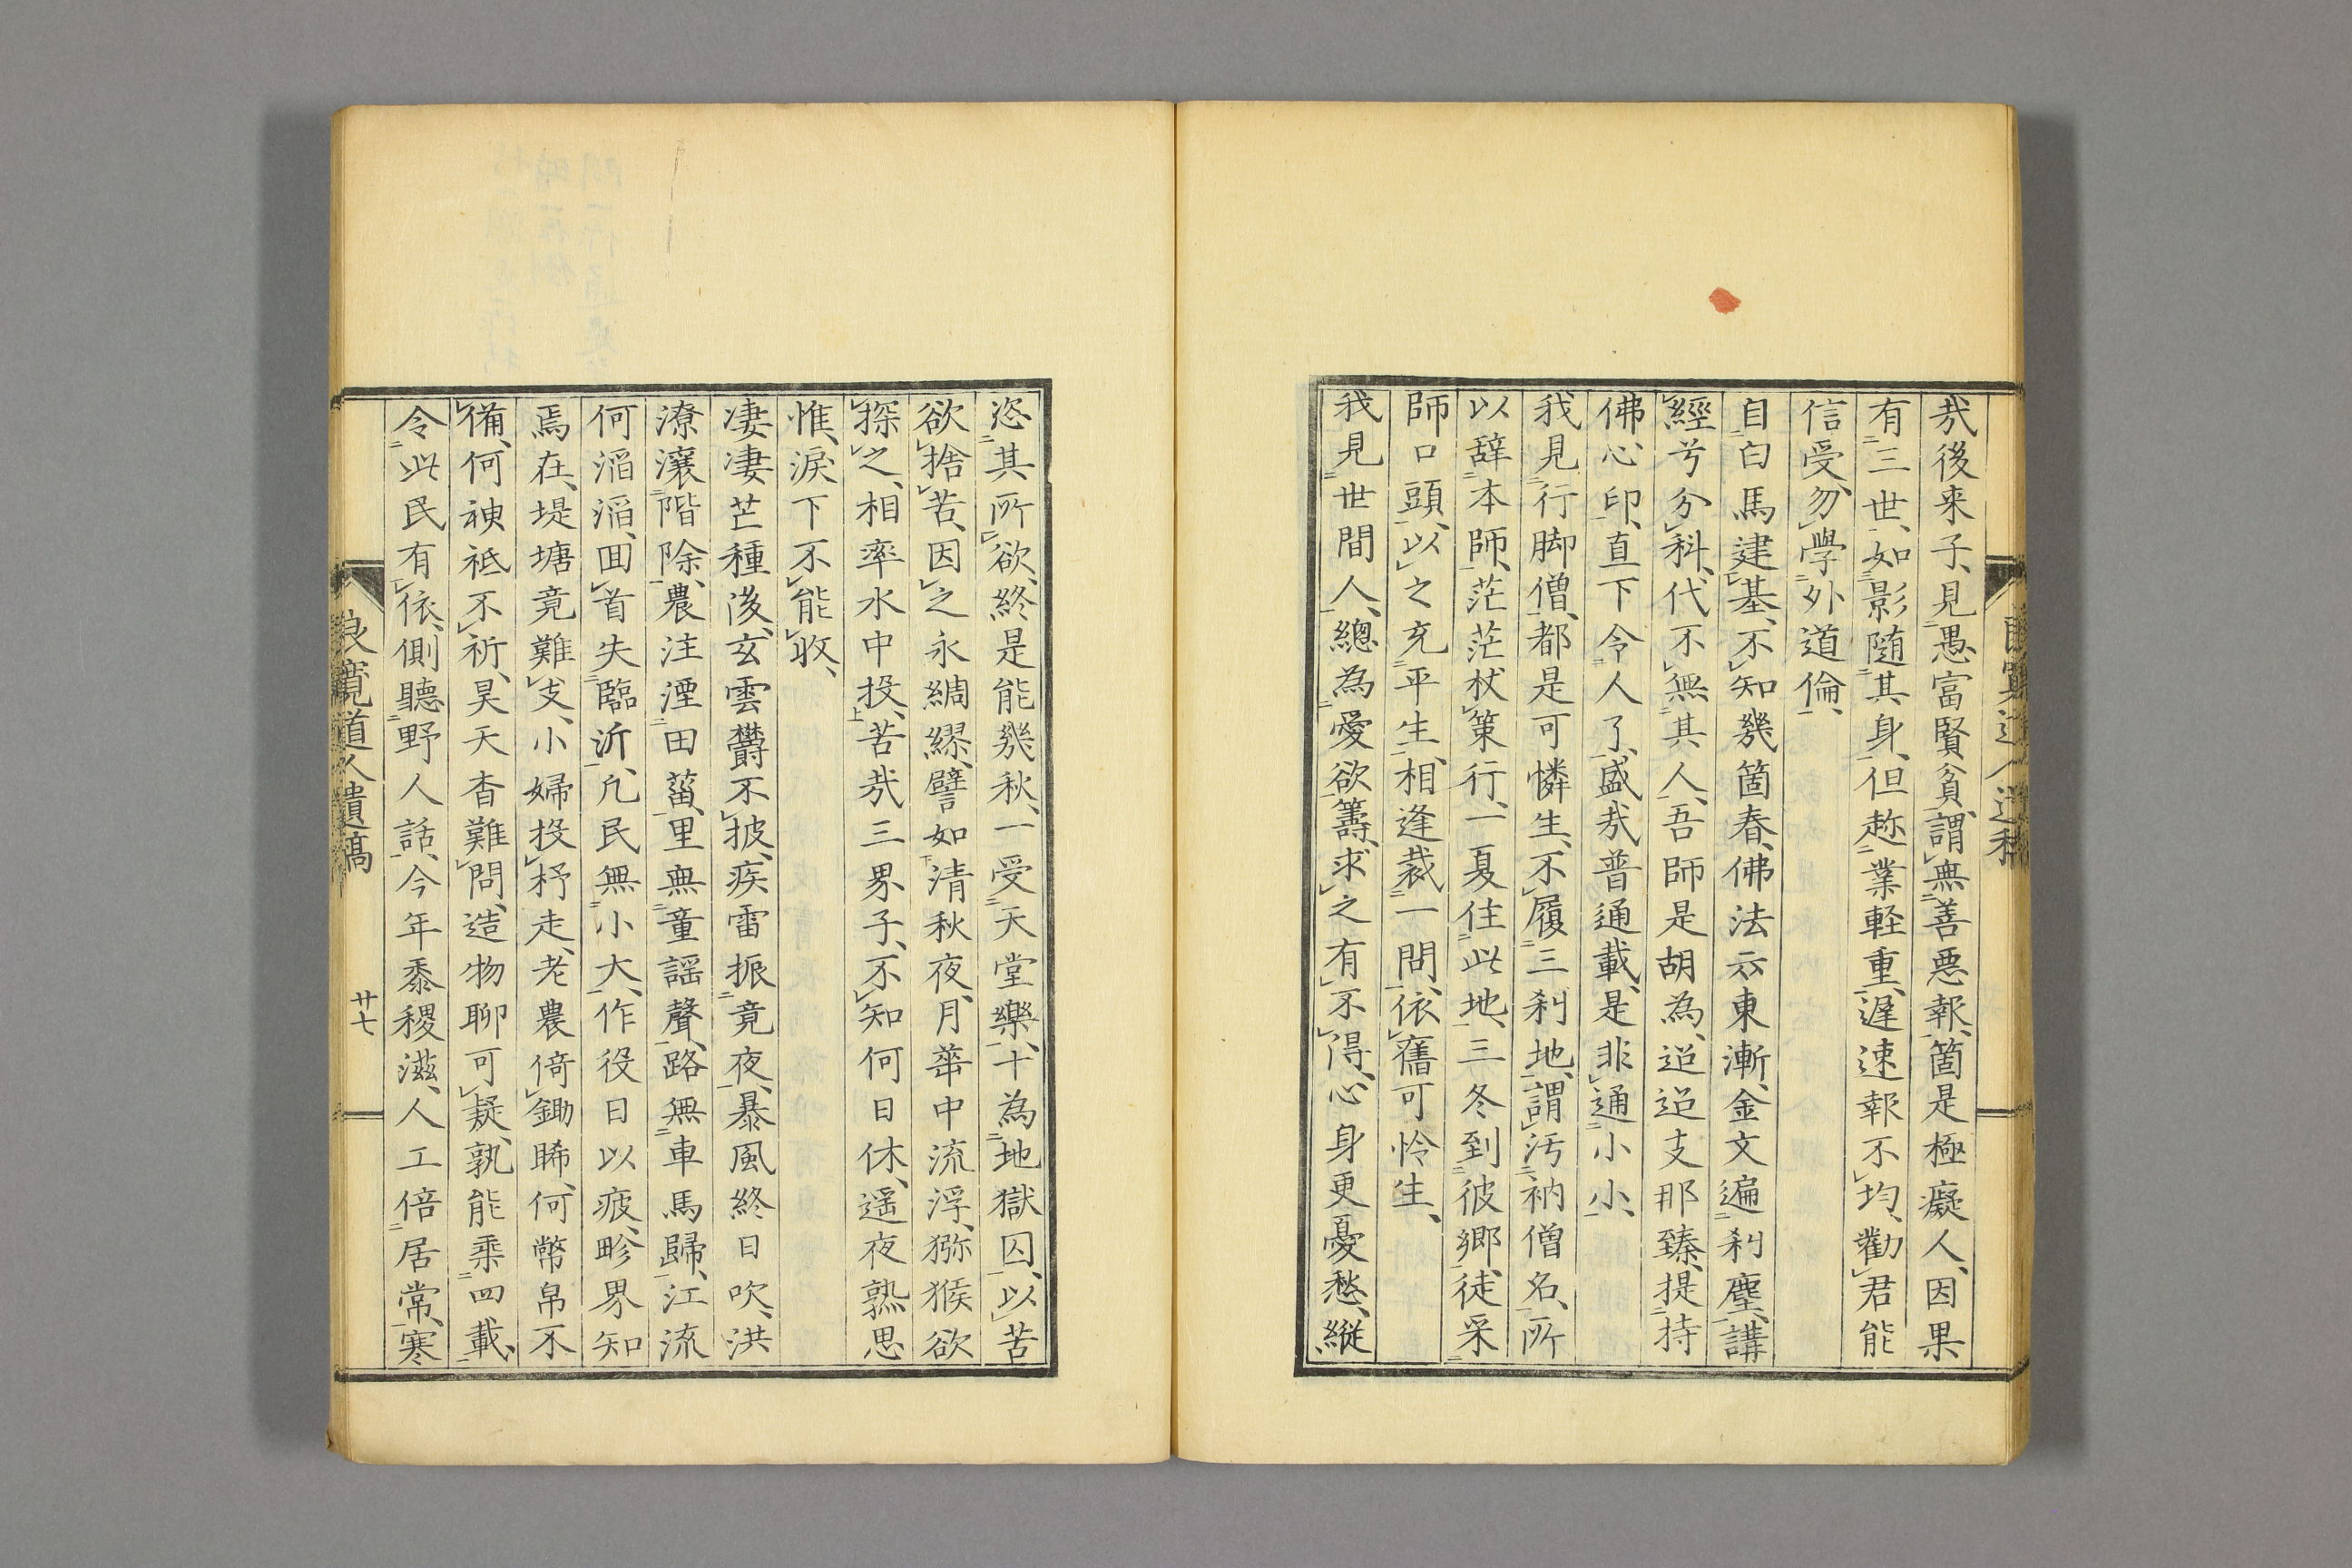 哉後来子、見愚富賢貧、謂無善悪報、箇是極癡人、因果
有三世、如影随其身、但趂業軽重、遅速報不均、勸君能
信受、勿學外道倫、
自白馬建基、不知幾箇春、佛法云東漸、金文遍刹塵、講
經兮分科、代不無其人、吾師是胡為、迢迢支那臻、提持
佛心印、直下令人了、盛哉普通載、是非通小小、
我見行脚僧、都是可憐生、不履三刹地、謂汚衲僧名、所
以辞本師、茫茫杖策行、一夏住此地、三冬到彼郷、徒采
師口頭、以之充平生、相逢裁一問、依舊可怜生、
我見世間人、總為愛欲籌、求之有不得、心身更憂愁、縦
恣其所欲、終是能幾秋、一受天堂樂、十為地獄囚、以苦
欲捨苦、因之永綢繆、譬如清秋夜、月華中流浮、獼猴欲
探之、相率水中投、苦哉三界子、不知何日休、遥夜熟思
惟、涙下不能収、
凄凄芒種後、玄雲欝不披、疾雷振竟夜、暴風終日吹、洪
潦瀼階除、農注湮田菑、里無童謡聲、路無車馬歸、江流
何滔滔、囬首失臨沂、凡民無小大、作役日以疲、畛界知
焉在、堤塘竟難支、小婦投杼走、老農倚鋤睎、何幣帛不
備、何神祗不祈、昊天杳難問、造物聊可疑、孰能乘四載、
令此民有依、側聽野人話、今年黍稷滋、人工倍居常、寒
浪覽道人遺稿
廿七